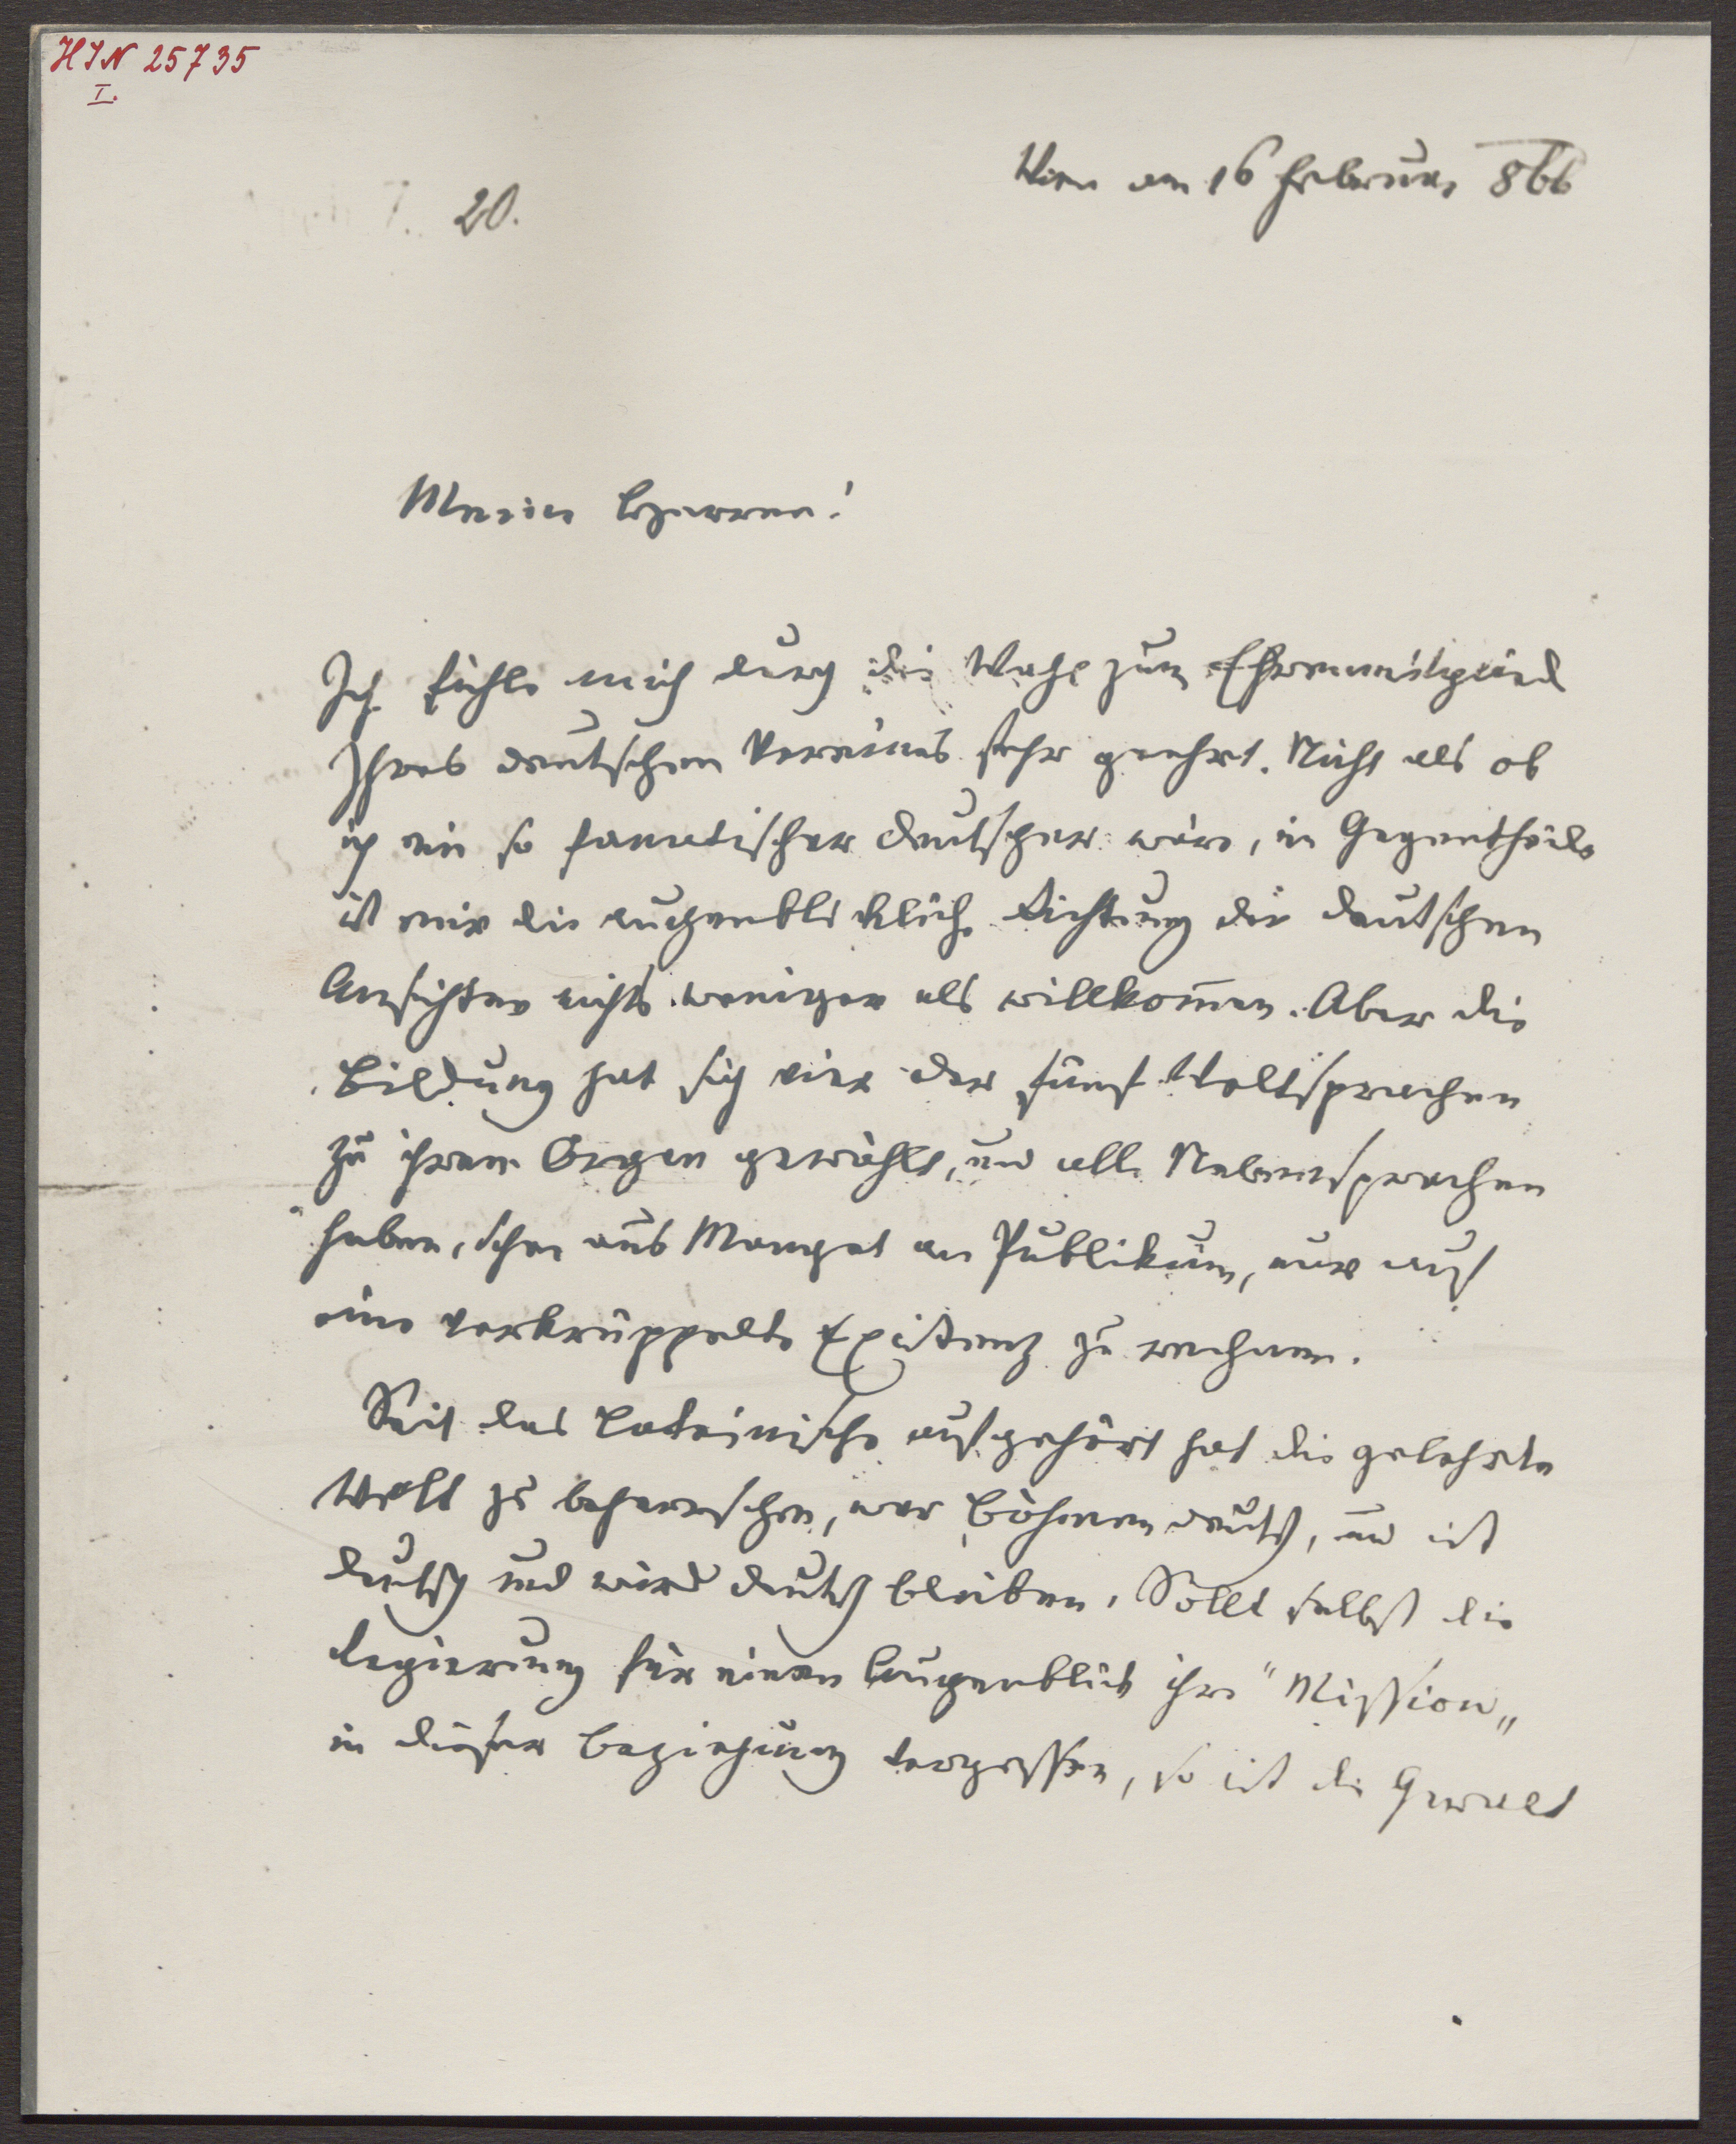 HIN 25735
I.
20.
Wien am 16 Februar 866
Meine Herren!
Ich fühle mich durch die Wahl zum Ehrenmitglied
Ihres deutschen Vereines sehr geehrt. Nicht als ob
ich ein so fanatischer Deutscher wäre, im Gegentheile
ist mir die augenblickliche Richtung der deutschen
Ansichten nichts weniger als willkom̅en. Aber die
Bildung hat sich eine der fünf Weltsprachen
zu ihrem Organ gewählt, und alle Nebensprachen
haben, schon aus Mangel an Publikum, nur auf
eine verkrüppelte Existenz zu rechnen.
Seit das Lateinische aufgehört hat die gelehrte
Welt zu beherrschen, war Böhmen deutsch, und ist
deutsch und wird deutsch bleiben. Sollt selbst die
Regierung für einen Augenblick ihre "Mission„
in dieser Beziehung vergessen, so ist die Gewalt